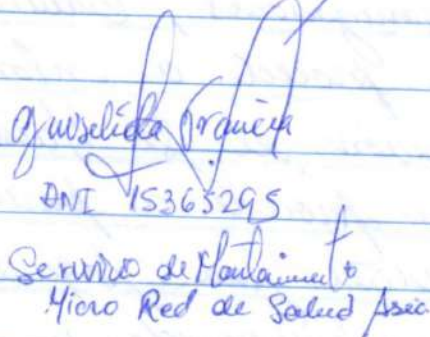 Francia
DNI 15365295
Servicio de Mantaimiento
Micro Red de Salud Asia